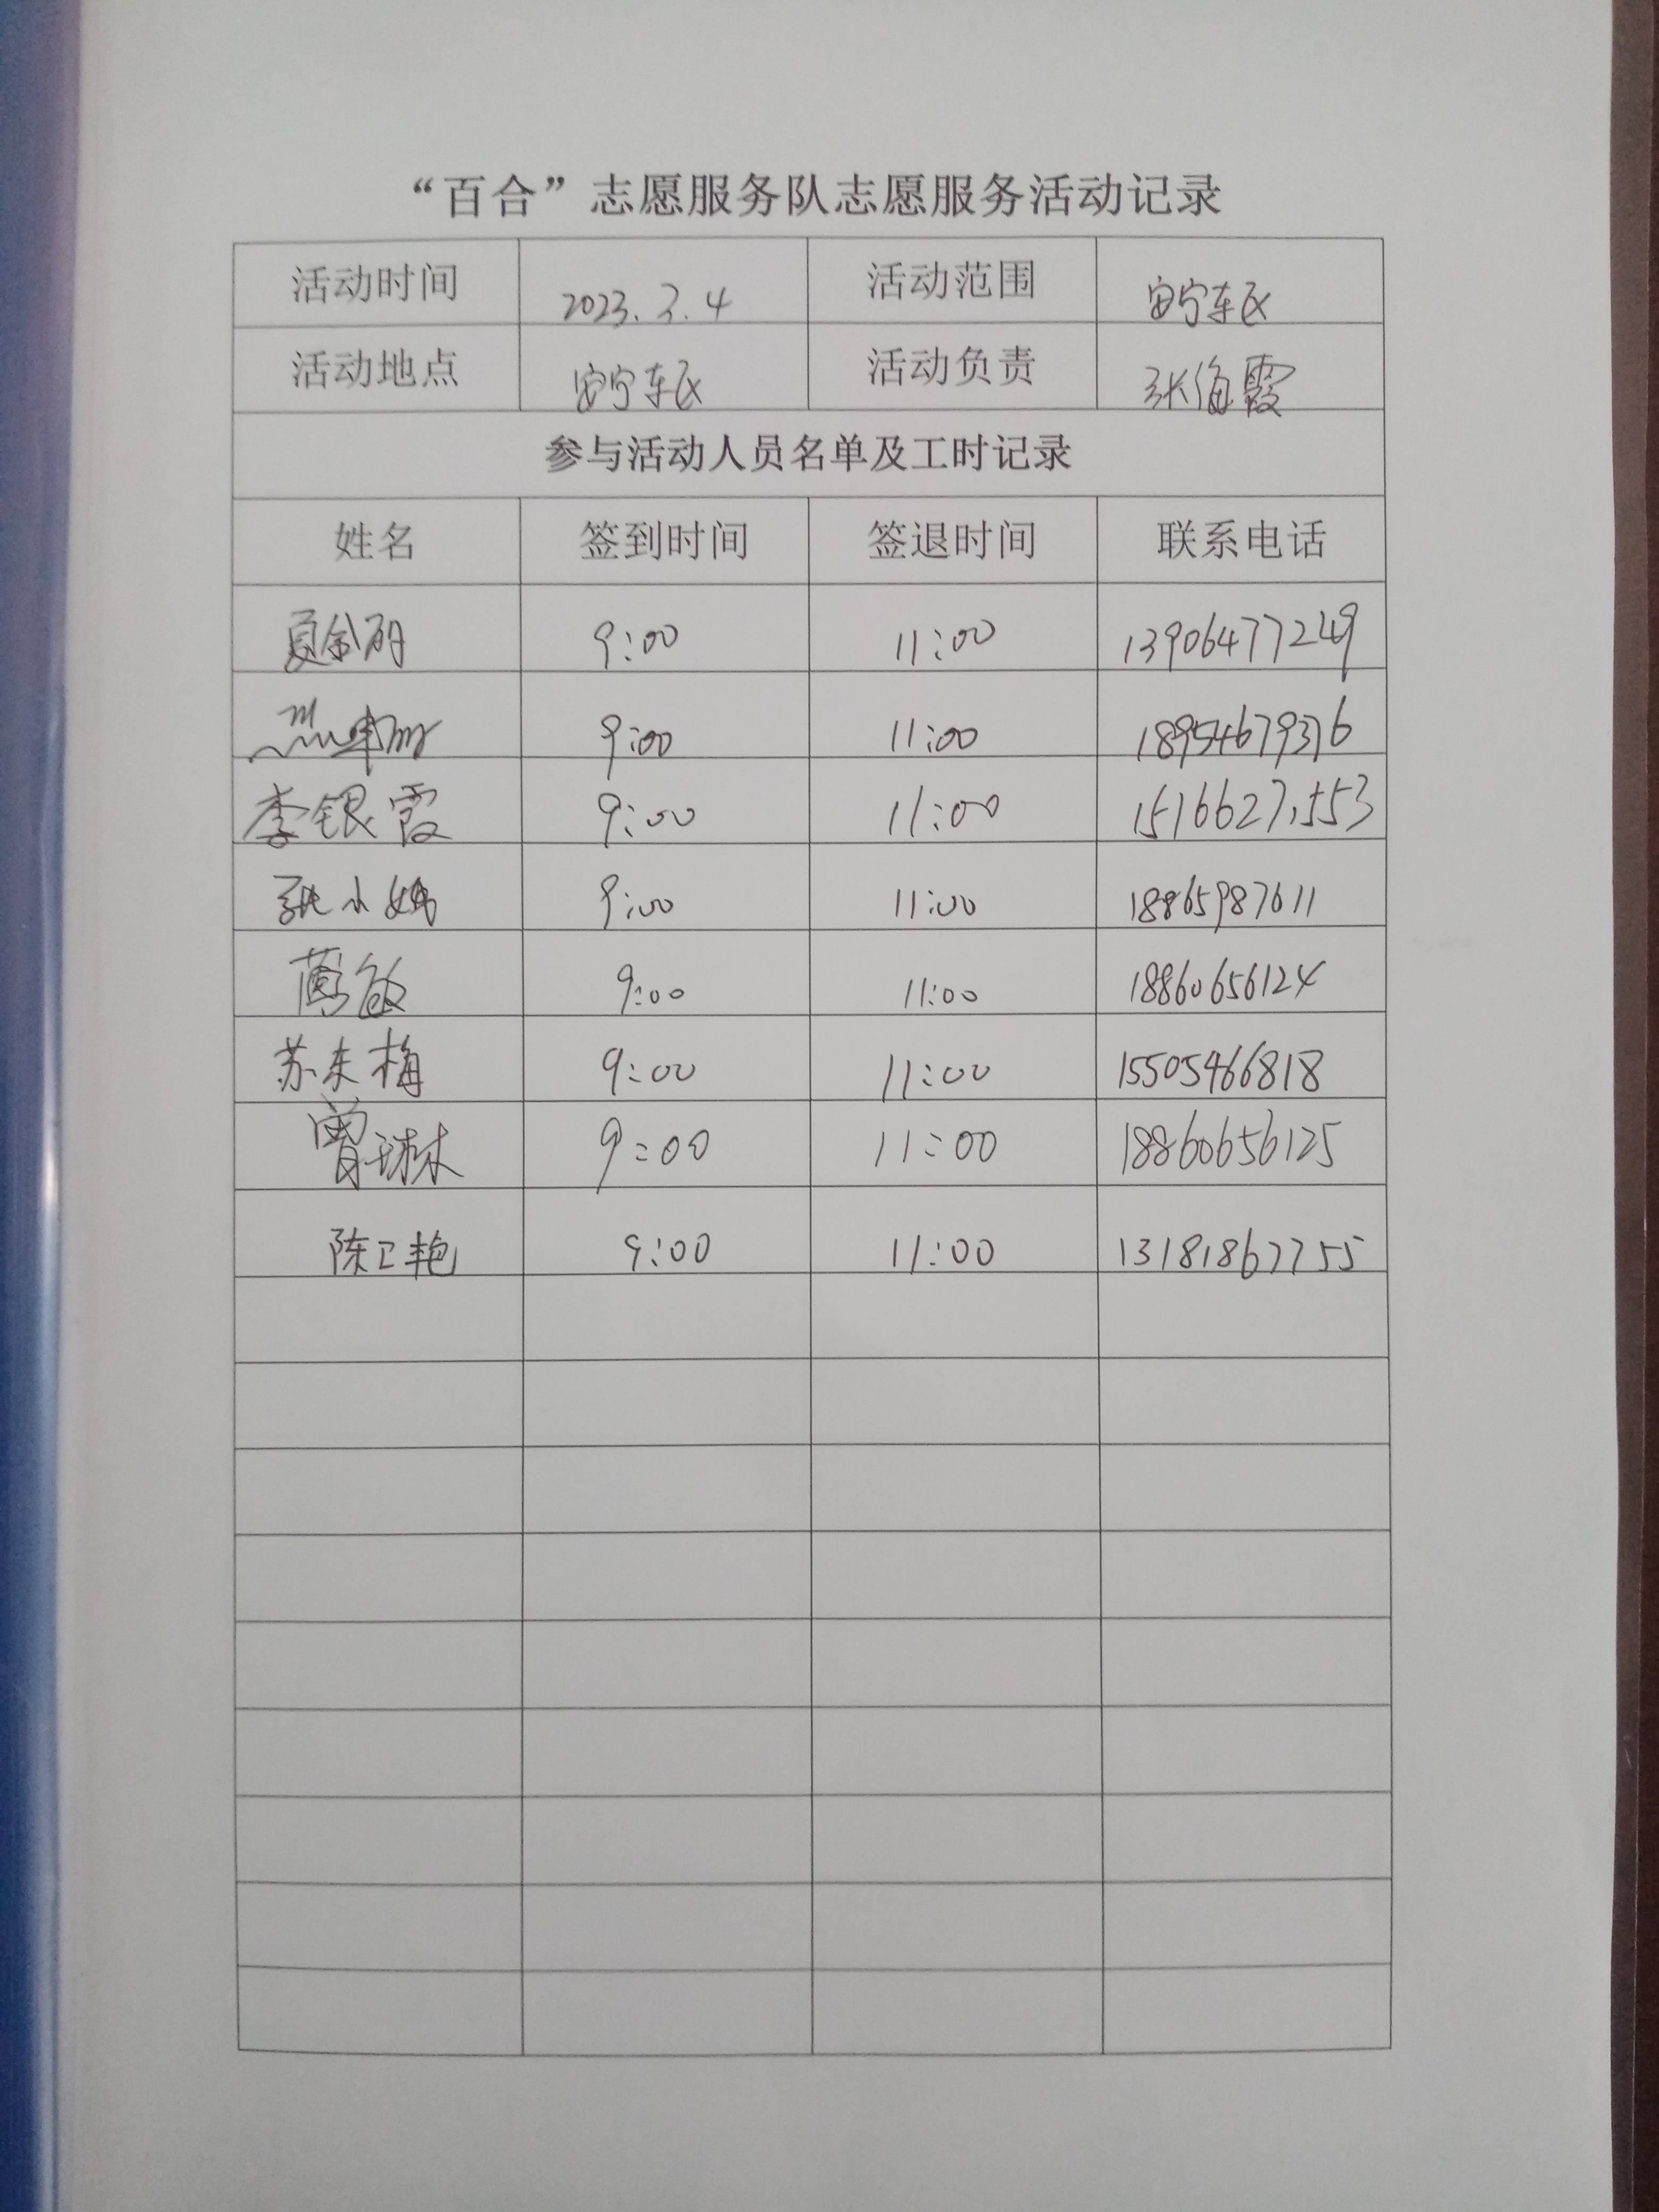 “百合”志愿服务队志愿服务活动记录
活动时间 2023.3.4 活动范围 安宁东区
活动地点 安宁东区 活动负责 张海霞
参与活动人员名单及工时记录
姓名 签到时间 签退时间 联系电话
9:00 11:00 13906477249
9:00 11:00 18954679376
李银霞 9:00 11:00 15166271553
张小娥 9:00 11:00 18865987611
9:00 11:00 18860656124
苏东梅 9:00 11:00 15505466818
曾球林 9:00 11:00 18860656125
陈卫艳 9:00 11:00 13181867755